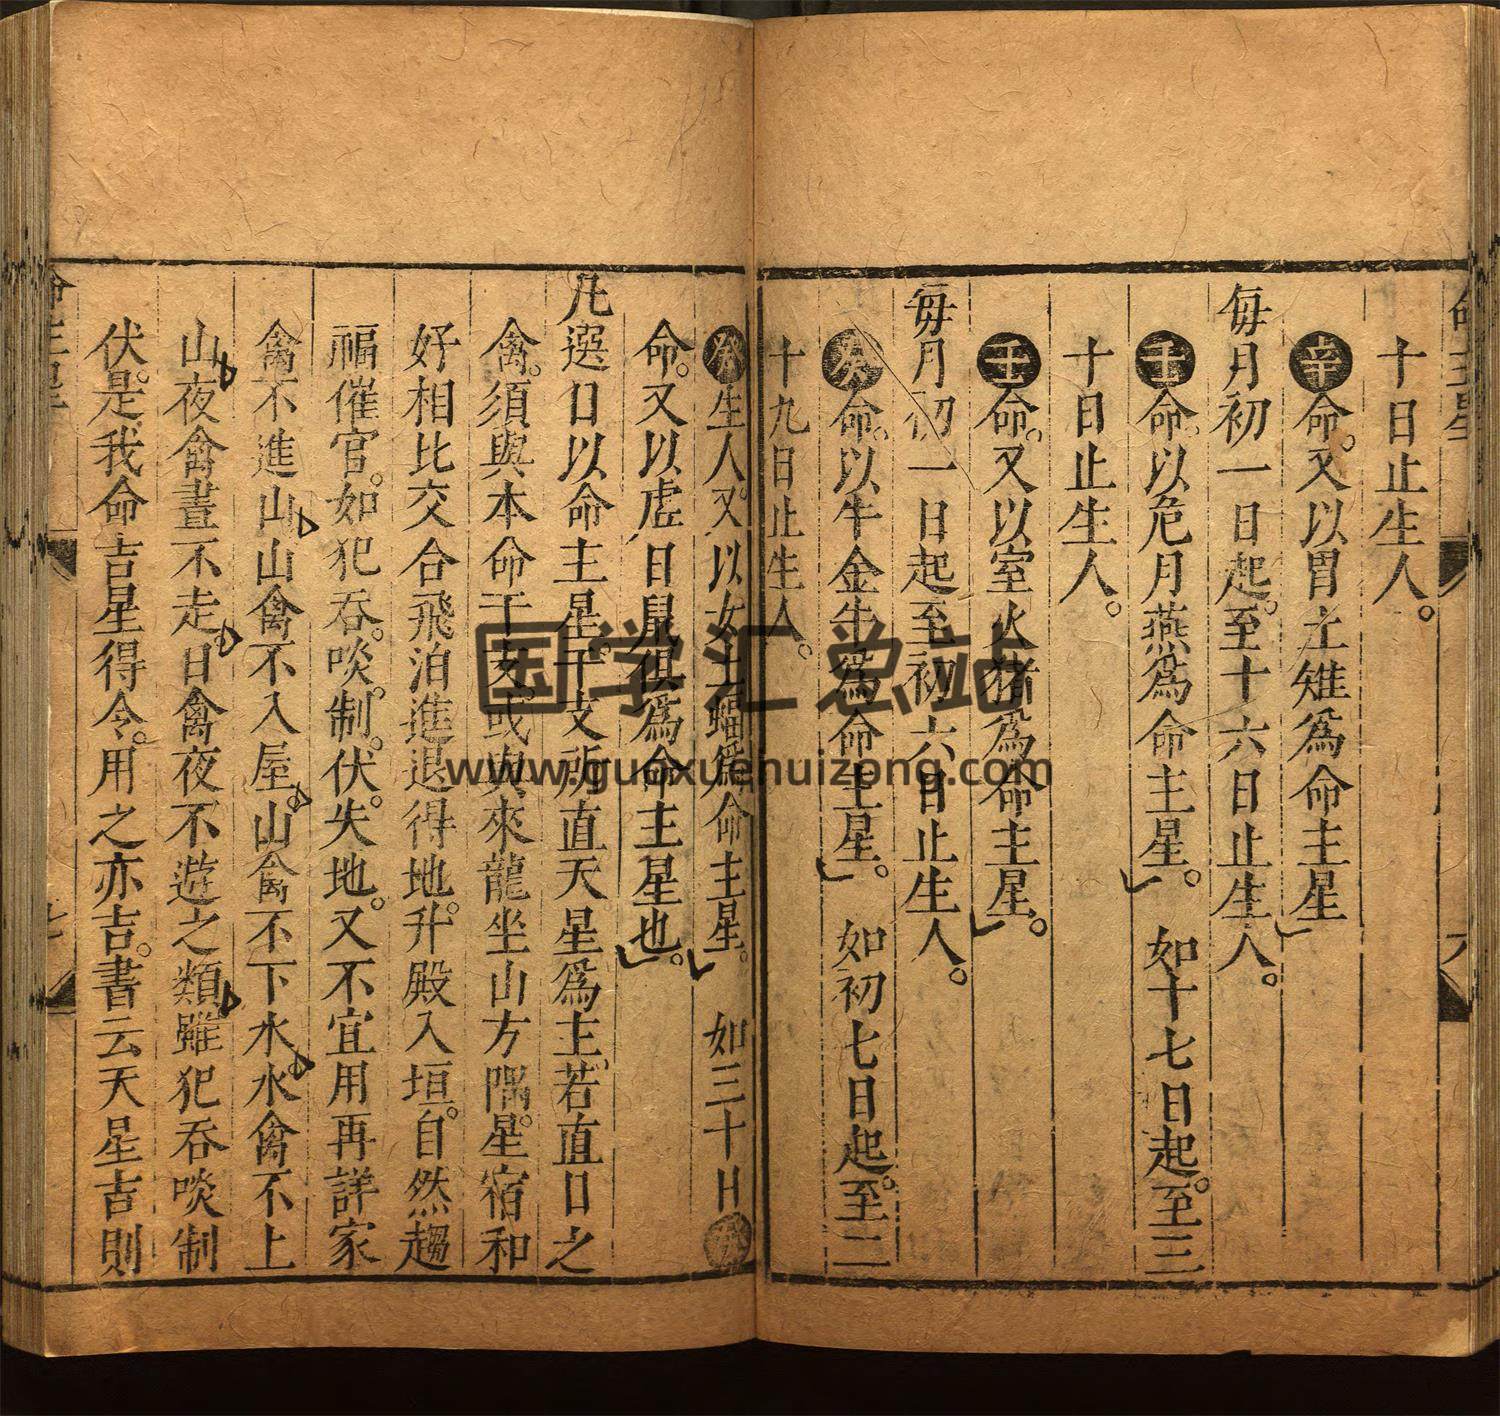 十日止生人。
辛命。又以胃土雉爲命主星
每月初一日起。至十六日止生人。
壬命。以危月燕爲命主星。 如十七日起。至三
十日止生人。
壬命。又以室火猪爲命主星。
每月初一日起至初六日止生人。
癸命。以牛金牛爲命主星。 如初七日起。至二
十九日止生人。
癸生人。又以女土蝠爲命主星。 如三十日癸
命。又以虛日鼠俱爲命主星也。
凡選日以命主星。干支所直天星爲主。若直日之
禽。須與本命干支。或與來龍坐山方隅。星宿和
好相比交合飛泊進退得地。升殿入垣。自然趨
福催官。如犯吞。啖制。伏。失地。又不宜用再詳家
禽不進山山禽不入屋。山禽不下水水禽不上
山夜禽晝不走。日禽夜不遊之類雖犯吞啖制
伏。是我命吉星得令。用之亦吉。書云天星吉則
命主星
六
国学汇总站
www.guoxuehuizong.com